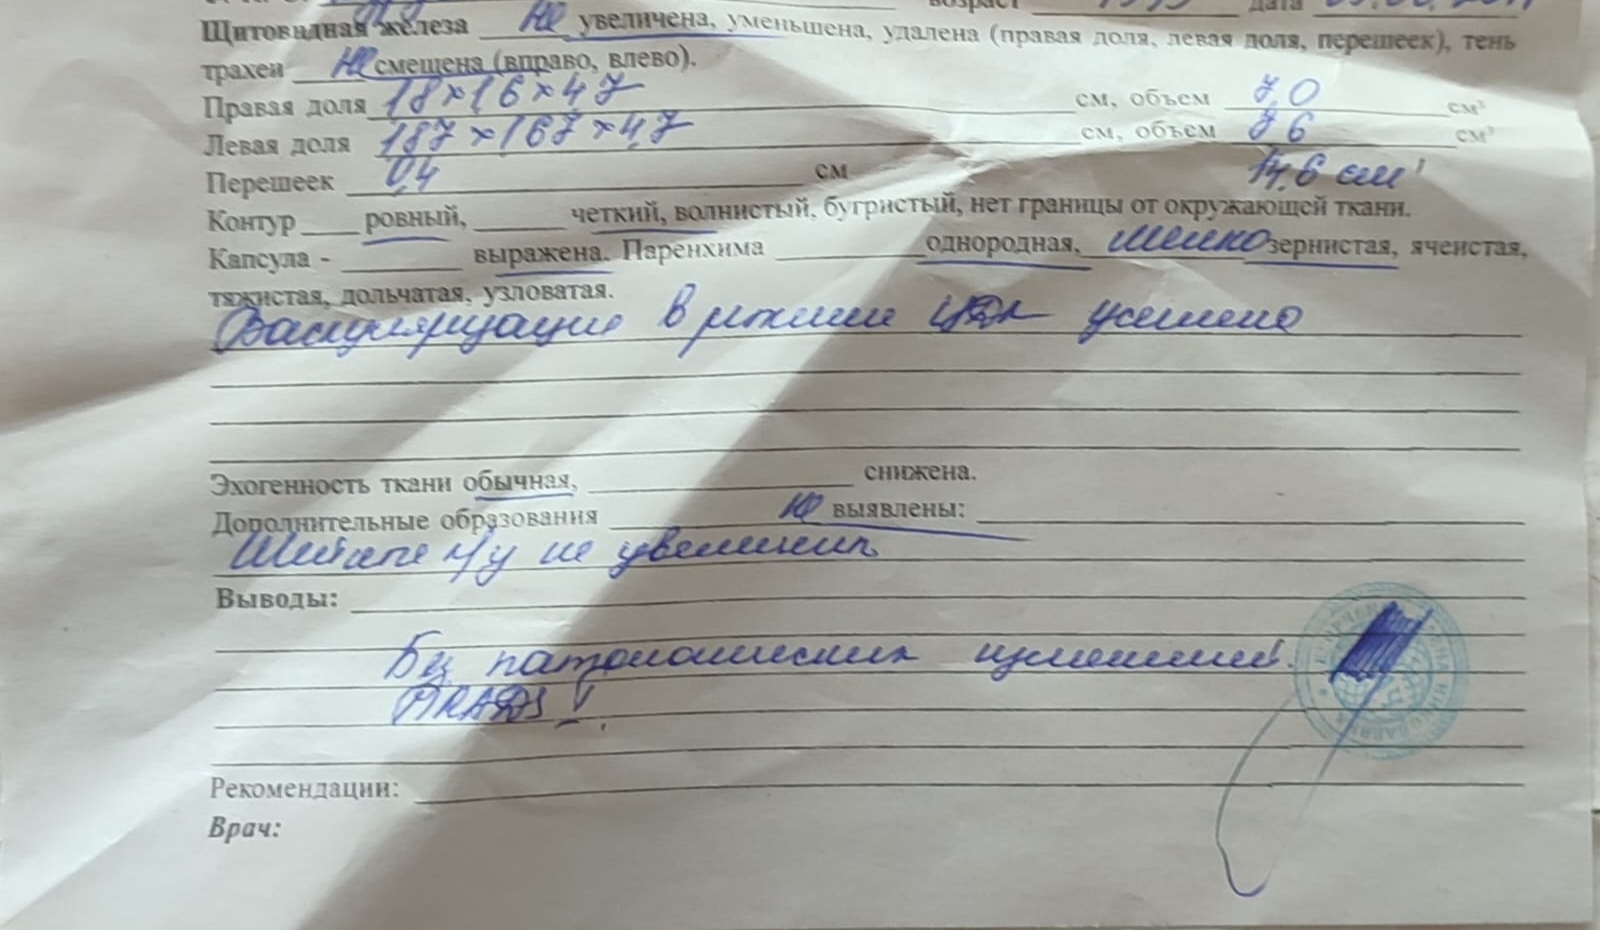 возраст дата
Щитовидная железа не увеличена, уменьшена, удалена (правая доля, левая доля, перешеек), тень
трахеи не смещена (вправо, влево).
Правая доля 1,8×1,6×4,7 см, объем 7,0 см³
Левая доля 1,87×1,67×4,7 см, объем 7,6 см³
Перешеек 0,4 см 14,6 см³
Контур ровный, четкий, волнистый, бугристый, нет границы от окружающей ткани.
Капсула - выражена. Паренхима однородная, мелко зернистая, ячеистая,
тяжистая, дольчатая, узловатая.
Васкуляризация в режиме ЦДК усилена
Эхогенность ткани обычная, снижена.
Дополнительные образования не выявлены:
Шейные л/у не увеличены
Выводы:
Без патологических изменений.
TIRADS 1.
Рекомендации:
Врач: